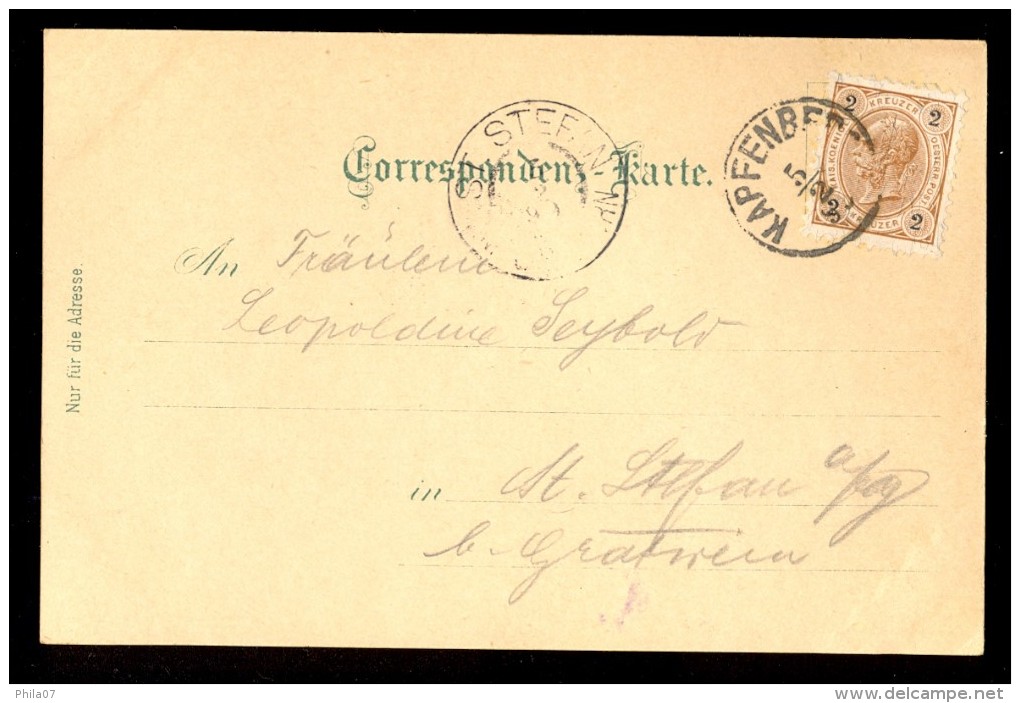 Correspondenz-Karte.
KAPFENBERG
5/2
2 KREUZER 2
KAIS. KOENIGL. OESTERR. POST.
2 KREUZER 2
ST. STEFAN
An Fräulein
Leopoldine Seybold
in St. Stefan a/g
b. Gratwein
Nur für die Adresse.
Phila07
www.delcampe.net